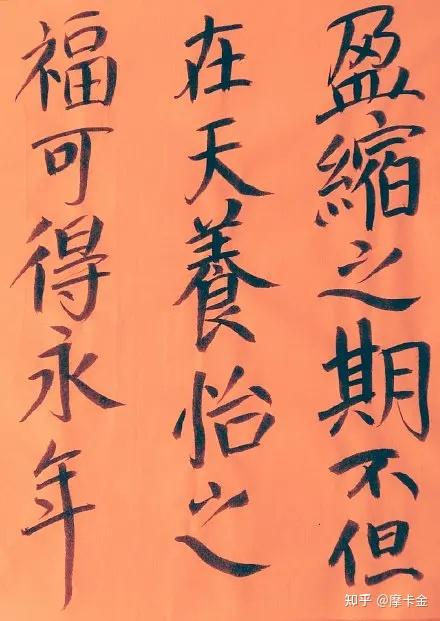 盈縮之期不但
在天養怡之
福可得永年
知乎 @摩卡金